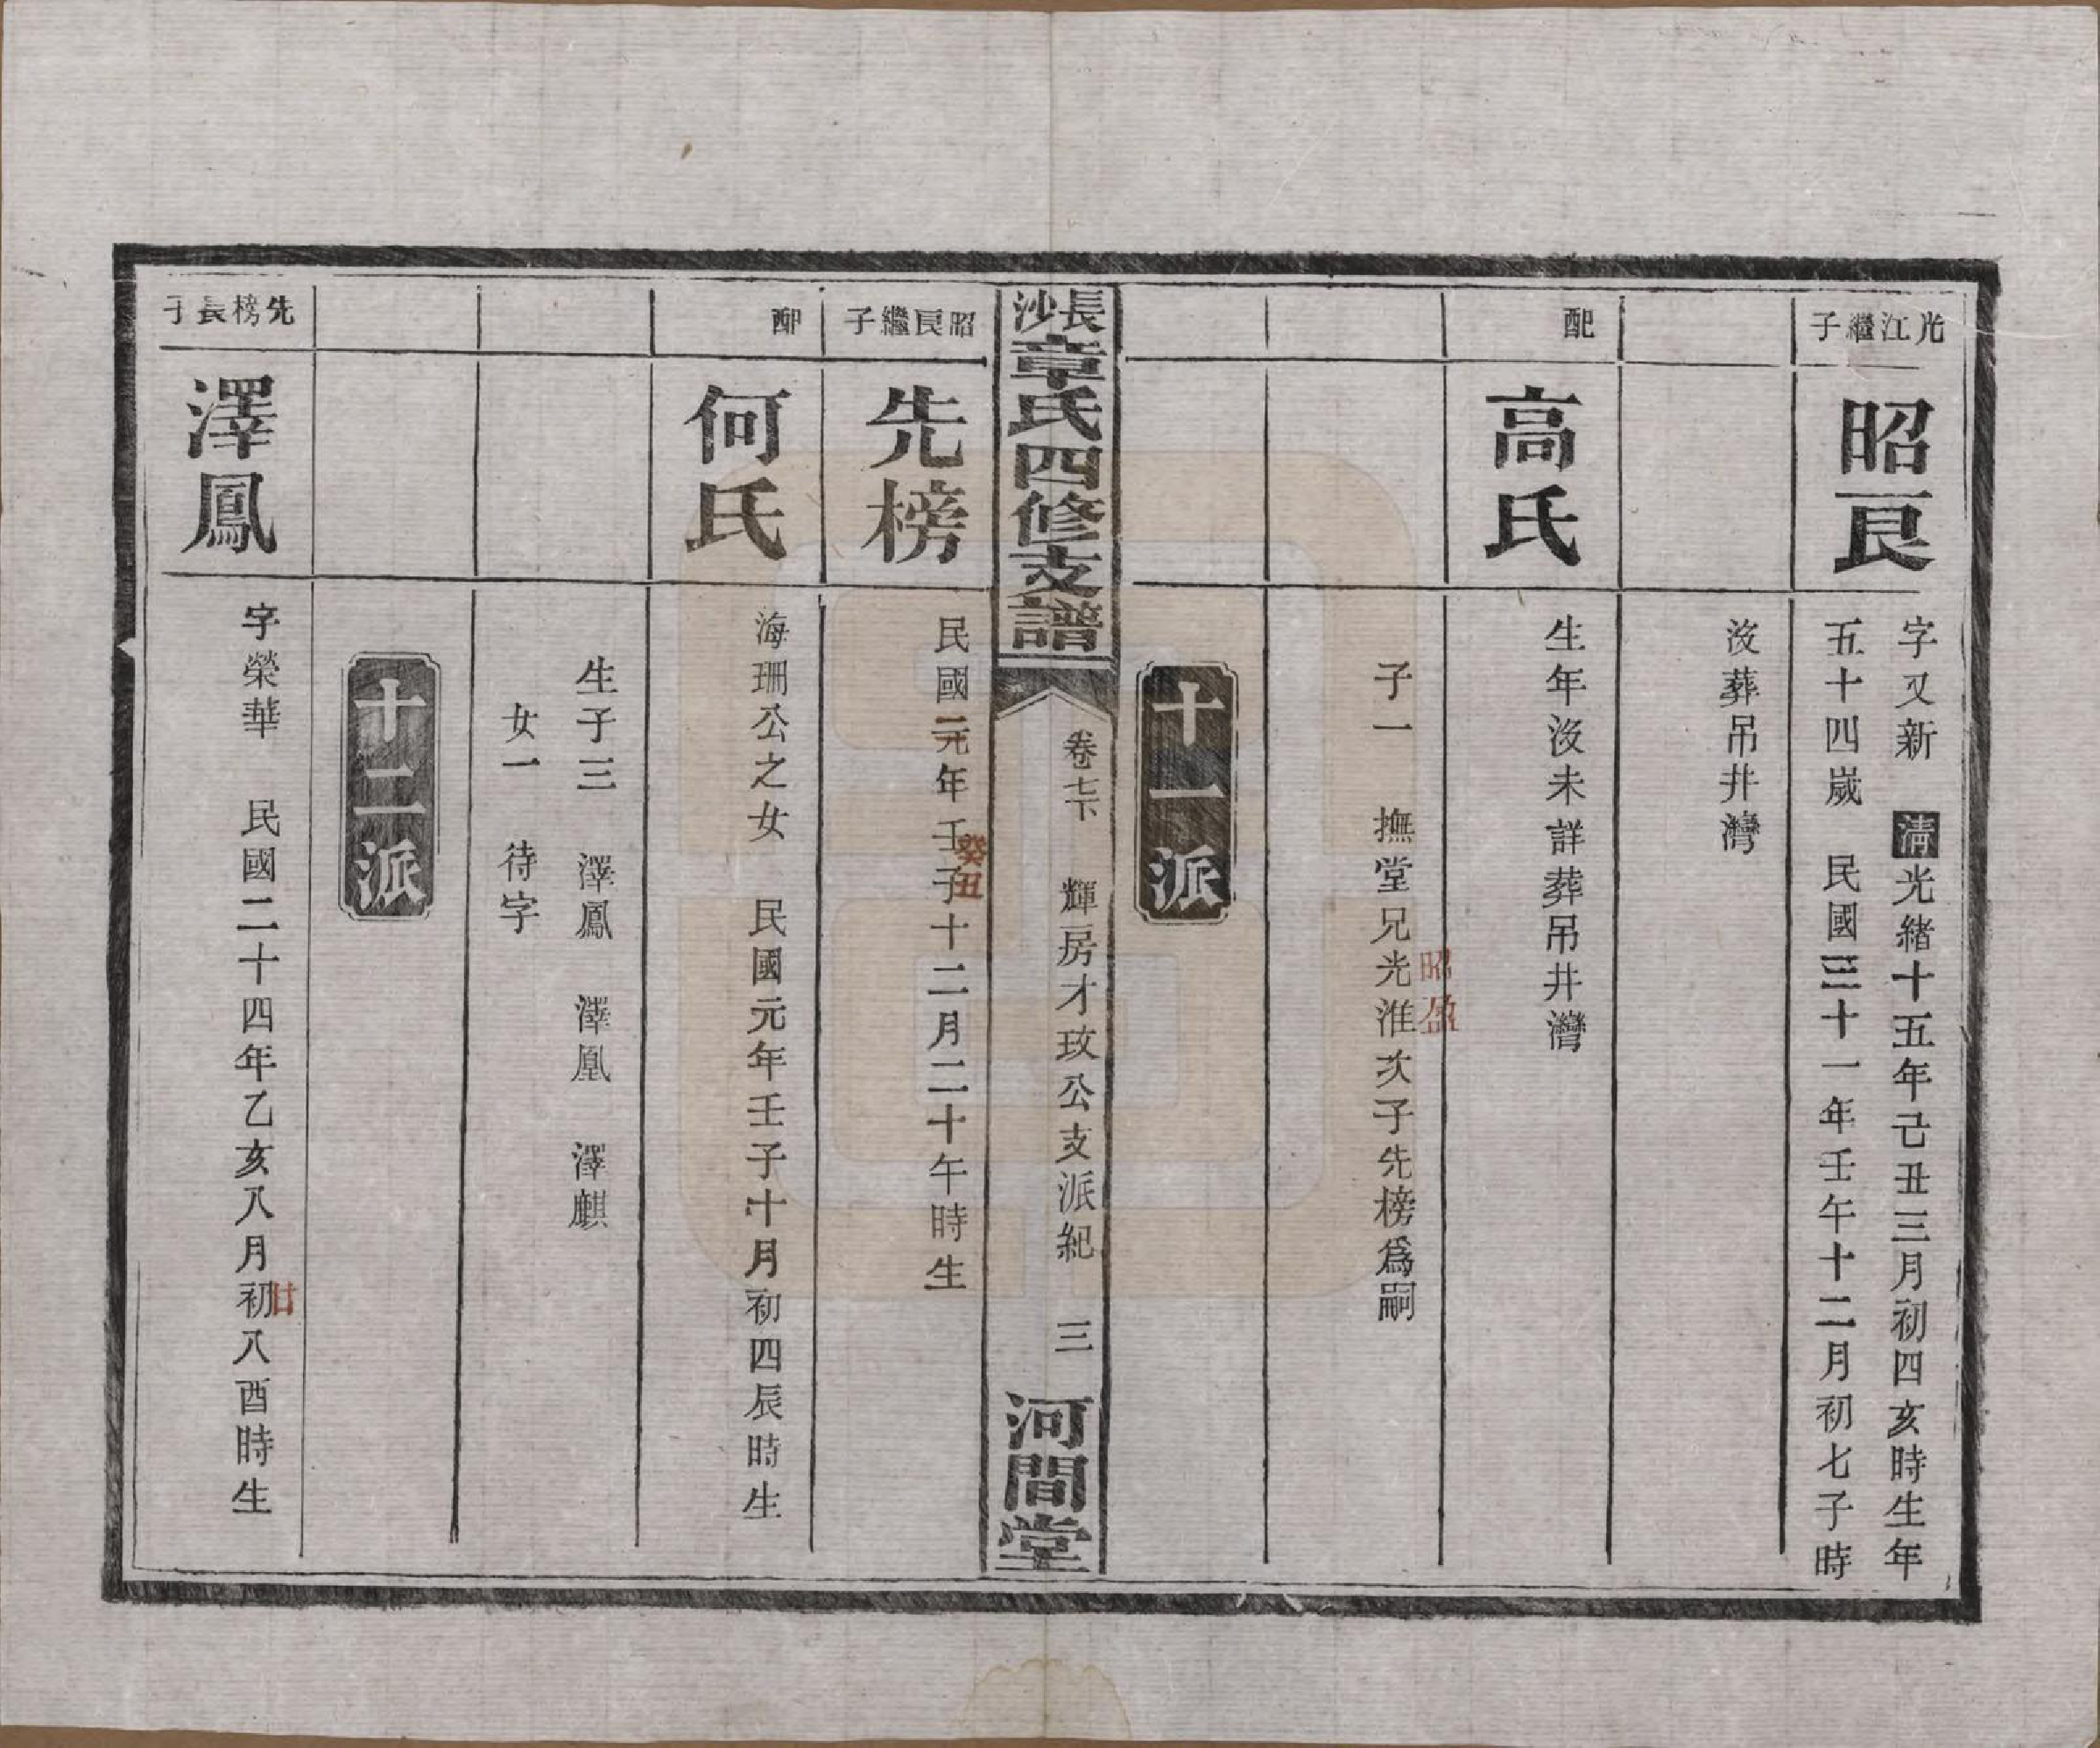 光江繼子
昭良
字又新　清光緒十五年己丑三月初四亥時生年
五十四嵗　民國三十一年壬午十二月初七子時
沒葬吊井灣
配
高氏
生年沒未詳葬吊井灣
子一　撫堂兄光淮次子先榜爲嗣
昭盈
十一派
長沙章氏四修支譜
卷七下　輝房才玫公支派紀　三
河間堂
昭良繼子
先榜
民國元年壬子十二月二十午時生
癸丑
配
何氏
海珊公之女　民國元年壬子十月初四辰時生
生子三　澤鳳　澤凰　澤麒
女一　待字
十二派
先榜長子
澤鳳
字榮華　民國二十四年乙亥八月初八酉時生
廿